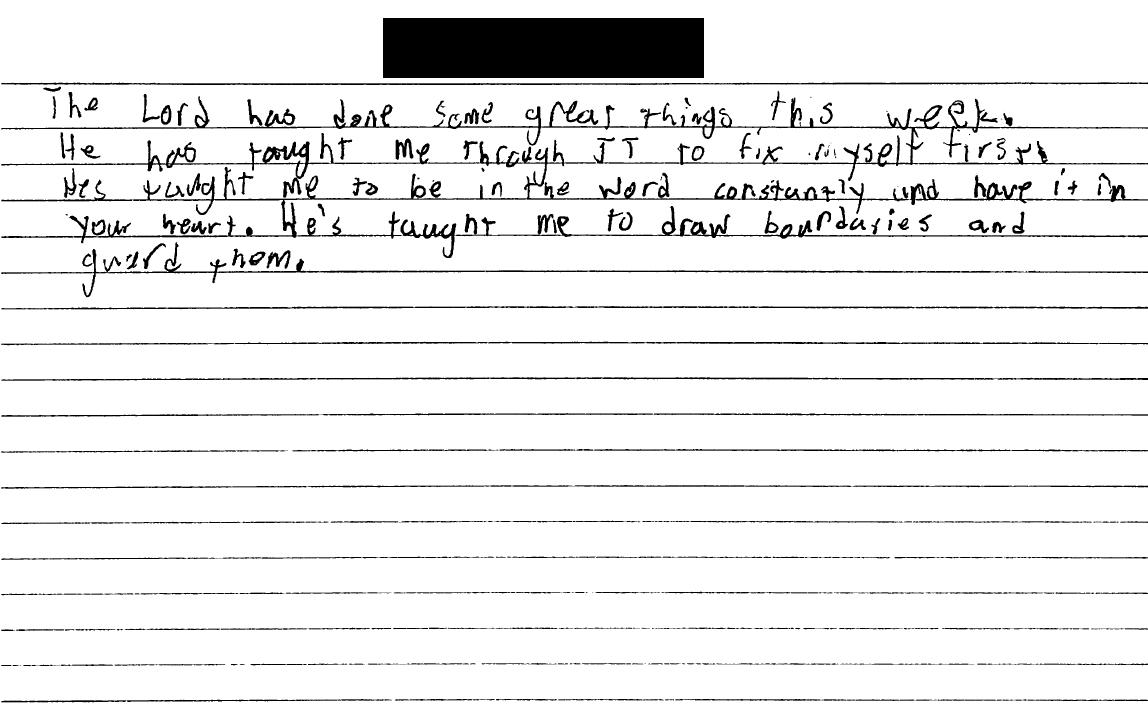 The Lord has done some great things this week.
He has taught me through JT to fix myself first.
Hes taught me to be in the word constantly and have it in
your heart. He's taught me to draw boundaries and
guard them.